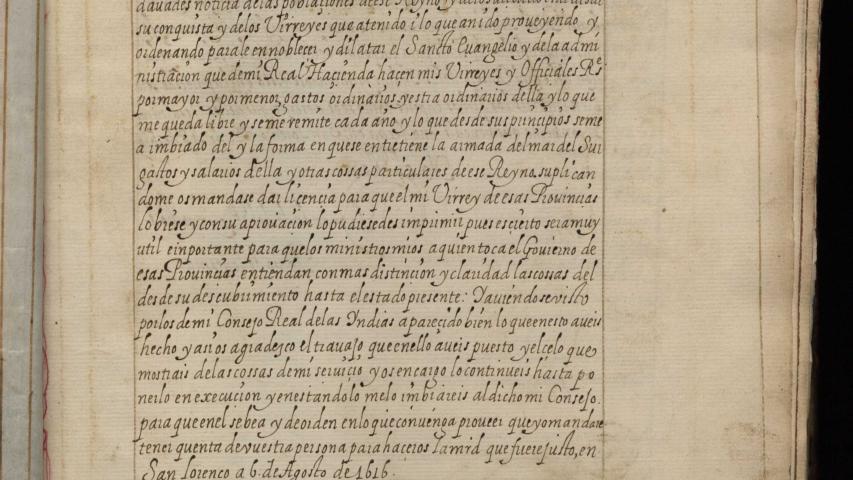 davades noticia delas poblaciones deese Reyno, y delos
su conquista y delos Virreyes que atenido i lo que an ido proveyendo, y
ordenando para le ennoblecer y dilatar el Sancto Evangelio y dela admi
nistracion que de mi Real Hacienda hacen mis Virreyes y Officiales Rs
por mayor y por menor, gastos ordinarios, y estraordinarios della y lo que
me queda libre y se me remite cada año y lo que desde sus principios se me
a imbiado del y la forma en que se entretiene la armada del mar del Sur
gastos y salarios della y otras cossas particulares de ese Reyno, suplican
dome os mandase dar licencia para que el mi Virrey de esas Provincias
lo biese y con su aprovacion lo pudiesedes imprimir pues es cierto sera muy
util e inportante para que los ministros mios a quien toca el Govierno de
esas Provincias entiendan con mas distincion y claridad las cossas del
desde su descubrimiento hasta el estado presente: Y aviendose visto
por los de mi Consejo Real de las Yndias a parecido bien lo que en esto aveis
hecho y asi os agradesco el travajo que en ello aveis puesto y el celo que
mostrais de las cossas de mi servicio y os encargo lo continueis hasta po
nerlo en execucion y en estandolo me lo imbiareis al dicho mi Consejo.
para que en el se bea y de orden en lo que convenga proveer que yo mandare
tener quenta de vuestra persona para haceros la mrd que fuere justo, en
San Lorenço a 6. de Agosto de 1616.